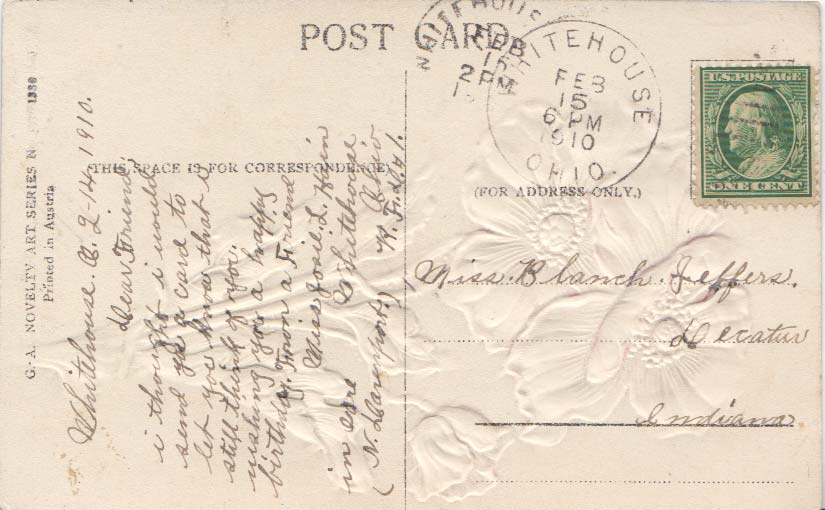 POST CARD
(THIS SPACE IS FOR CORRESPONDENCE)
(FOR ADDRESS ONLY.)
G.-A. NOVELTY ART SERIES N
1336
Printed in Austria
WHITEHOUSE
FEB
15
2 PM
WHITEHOUSE
FEB
15
6 PM
1910
OHIO.
U.S. POSTAGE
ONE CENT
Whitehouse. O. 2-14-1910.
Dear Friend
i thought i would
send you a card to
let you know that i
still think of you.
wishing you a happy
birthday. From a Friend
Miss Josie L.
in care Whitehouse
(N. Davenport.) R. F. d. #1.
Miss. Blanch. Jeffers.
Decatur
Indiana